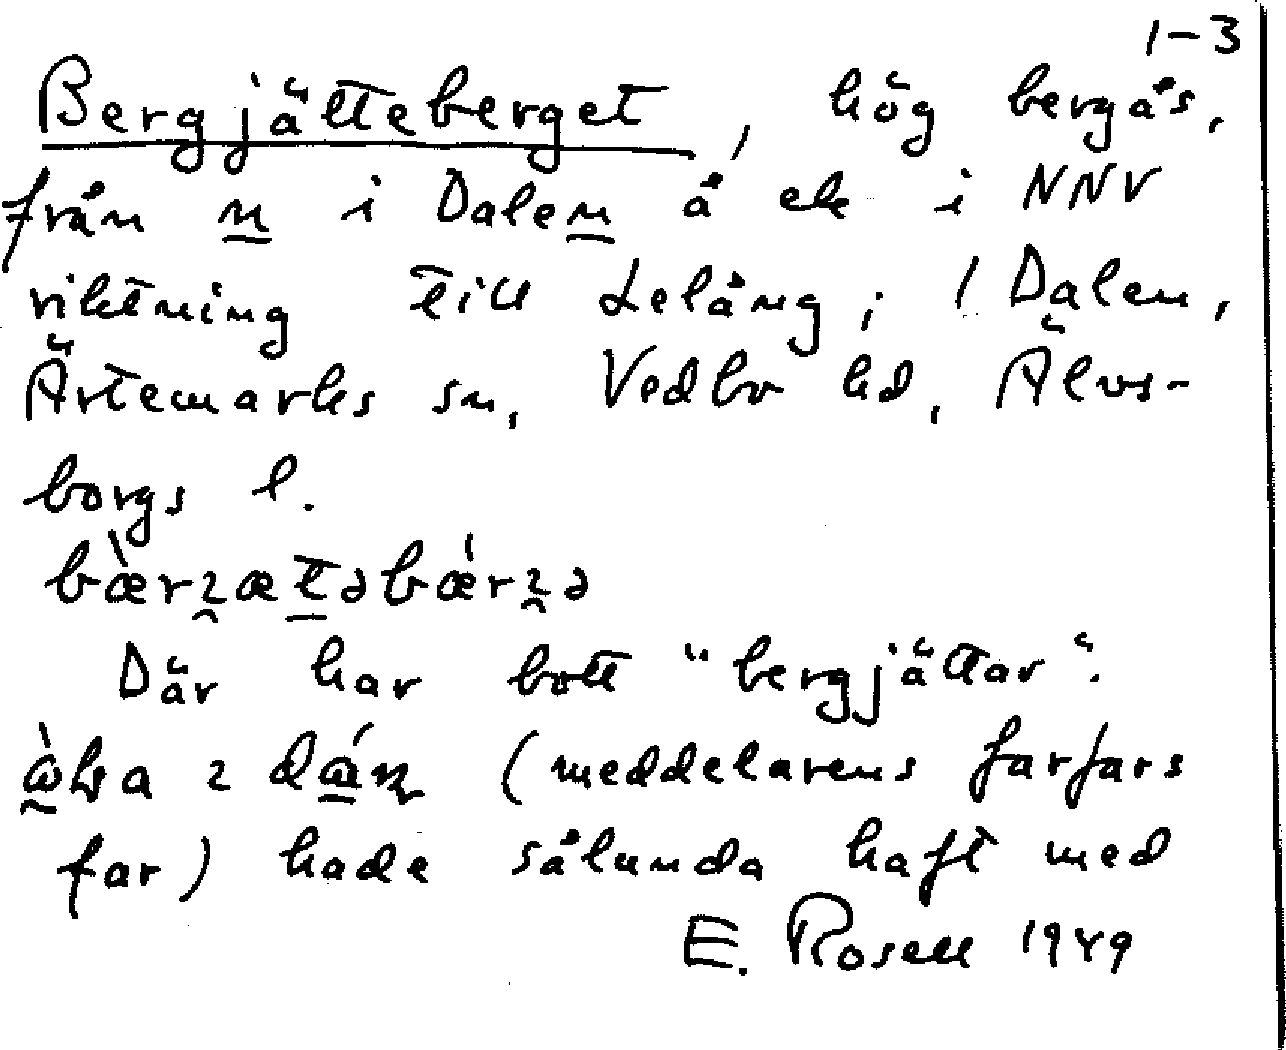 1-3
Bergjätteberget, hög bergås,
från n i Dalen å ek i NNV
riktning till Lelång; 1 Dalen,
Ärtemarks sn, Vedbo hd, Älvs-
borgs l.
bæ̀rʒætəbǽrʒə
Där har bott "bergjättar".
(meddelarens farfars
far) hade sålunda haft med
E. Rosell 1949